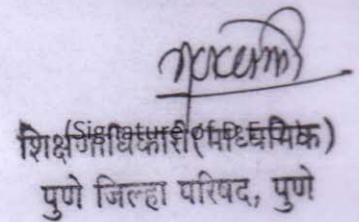 (Signature of D.E.O.)
शिक्षणाधिकारी (माध्यमिक)
पुणे जिल्हा परिषद, पुणे